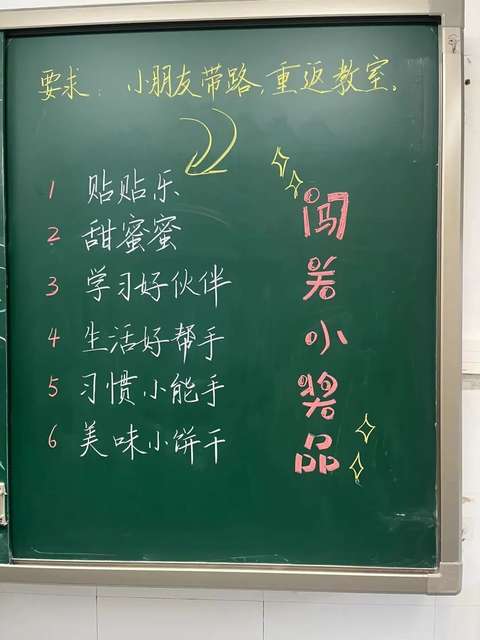 要求：小朋友带路，重返教室。
1 贴贴乐
2 甜蜜蜜
3 学习好伙伴
4 生活好帮手
5 习惯小能手
6 美味小饼干
闯关小奖品